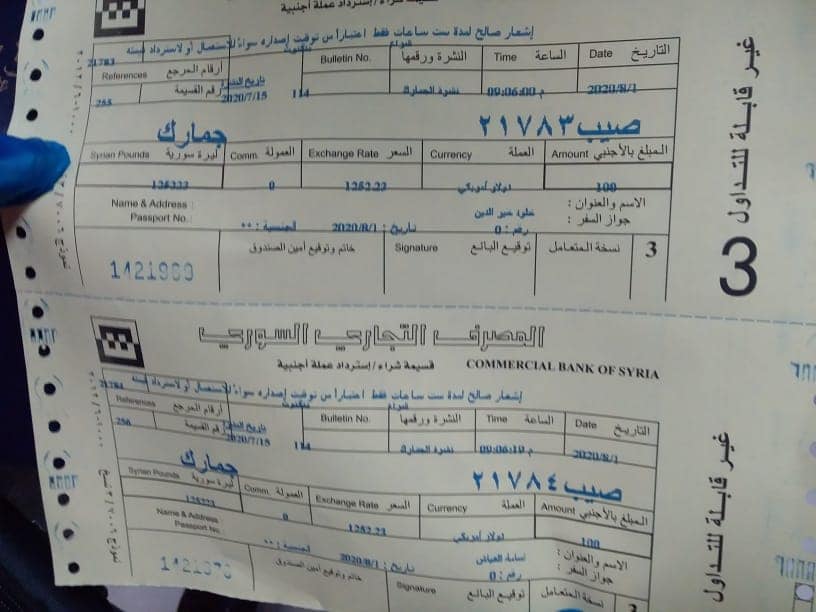 قسيمة شراء/إسترداد عملة أجنبية
إشعار صالح لمدة ست ساعات فقط اعتباراً من توقيت إصداره سواءً للاستعمال أو لاسترداد قيمته
التاريخ Date الساعة Time النشرة ورقمها Bulletin No. أرقام المرجع References 21783
2020/8/1 09:06:00 م نشرة الجمارك 114 تاريخ النشرة 2020/7/15 رقم القسيمة 255
صيب٢١٧٨٣ جمارك
المبلغ بالأجنبي Amount العملة Currency السعر Exchange Rate العمولة Comm. ليرة سورية Syrian Pounds
100 دولار أمريكي 1252.23 0 125223
الاسم والعنوان : خلود خير الدين Name & Address :
جواز السفر : رقم : 0 تاريخ : 2020/8/1 الجنسية : ** Passport No.
3 نسخة المتعامل توقيع البائع Signature خاتم وتوقيع أمين الصندوق
1421969
غير قابلة للتداول 3
المصرف التجاري السوري
COMMERCIAL BANK OF SYRIA قسيمة شراء/إسترداد عملة أجنبية
إشعار صالح لمدة ست ساعات فقط اعتباراً من توقيت إصداره سواءً للاستعمال أو لاسترداد قيمته
التاريخ Date الساعة Time النشرة ورقمها Bulletin No. أرقام المرجع References 21784
2020/8/1 09:06:19 م نشرة الجمارك 114 تاريخ النشرة 2020/7/15 رقم القسيمة 256
صيب٢١٧٨٤ جمارك
المبلغ بالأجنبي Amount العملة Currency السعر Exchange Rate العمولة Comm. ليرة سورية Syrian Pounds
100 دولار أمريكي 1252.23 0 125223
الاسم والعنوان : اسامة العياش Name & Address
جواز السفر : رقم : 0 تاريخ : 2020/8/1 الجنسية : ** Passport No.
نسخة المتعامل توقيع البائع Signature خاتم وتوقيع أمين الصندوق
1421970
غير قابلة للتداول